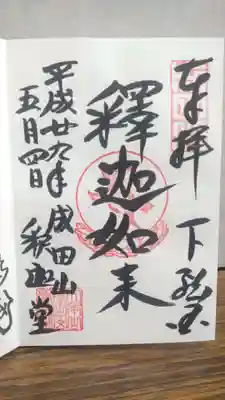 奉拝 下総国
釋迦如来
成田山 釈迦堂
平成廿九年
五月四日